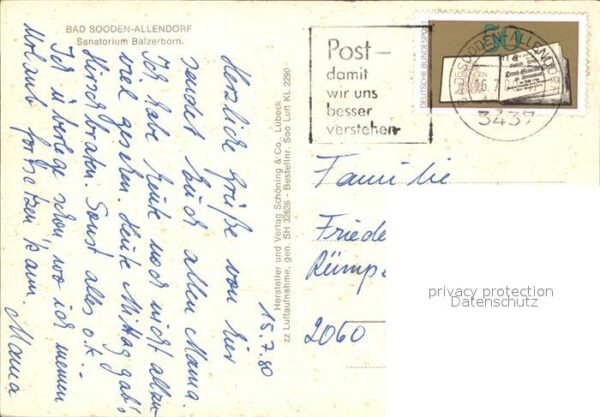 BAD SOODEN-ALLENDORF
Sanatorium Balzerborn.
Herzliche Grüße von hier
sendet Euch allen Mama.
Ich habe heute noch nicht allzu
viel gesehen. Heute Mittag gab's
Hirschbraten. Sonst alles o.k.
Ich überlege schon, wo ich meinen
Urlaub fortsetzen kann. Mama
15.7.80
Hersteller und Verlag Schöning & Co., Lübeck
zz Luftaufnahme, gen. SH 32626 - Bestellnr. Soo Luft KL 2290
Post-
damit
wir uns
besser
verstehen
DEUTSCHE BUNDESPOST
50
SOODEN-ALLENDO
16.7.
3437
Familie
Friede
Rümpe
2060
privacy protection
Datenschutz